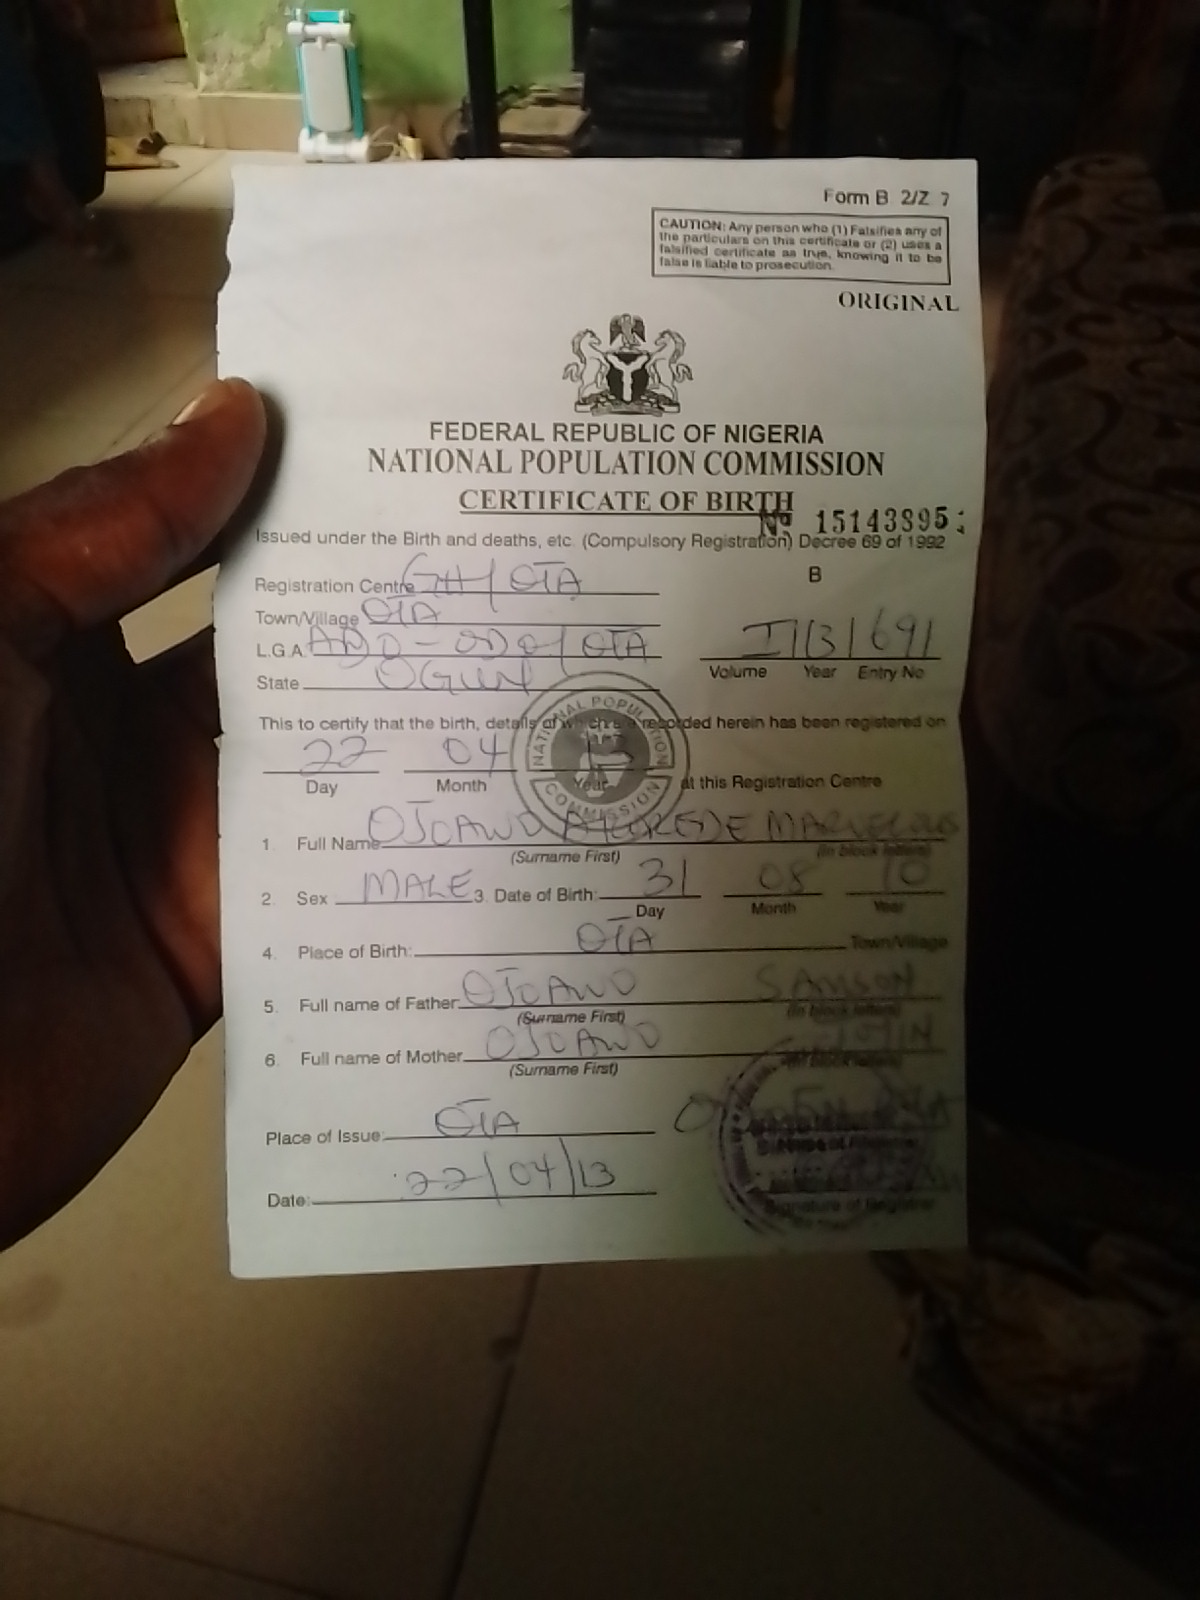 Form B 2/Z 7
CAUTION: Any person who (1) Falsifies any of
the particulars on this certificate or (2) uses a
falsified certificate as true, knowing it to be
false is liable to prosecution.
ORIGINAL
FEDERAL REPUBLIC OF NIGERIA
NATIONAL POPULATION COMMISSION
CERTIFICATE OF BIRTH
No 15143895
Issued under the Birth and deaths, etc. (Compulsory Registration) Decree 69 of 1992
B
Registration Centre GH/OTA
Town/Village OTA
L.G.A. ADO-ODO/OTA
State OGUN
I/13/691
Volume Year Entry No
This to certify that the birth, details of which are recorded herein has been registered on
22 04 13
Day Month Year at this Registration Centre
NATIONAL POPULATION COMMISSION
1. Full Name OJOAWO MARVELOUS
(Surname First) (In block letters)
2. Sex MALE 3. Date of Birth: 31 08 10
Day Month Year
4. Place of Birth: OTA Town/Village
5. Full name of Father OJOAWO SAMSON
(Surname First) (In block letters)
6. Full name of Mother OJOAWO
(Surname First) (In block letters)
Place of Issue: OTA
Date: 22/04/13
Signature of Registrar